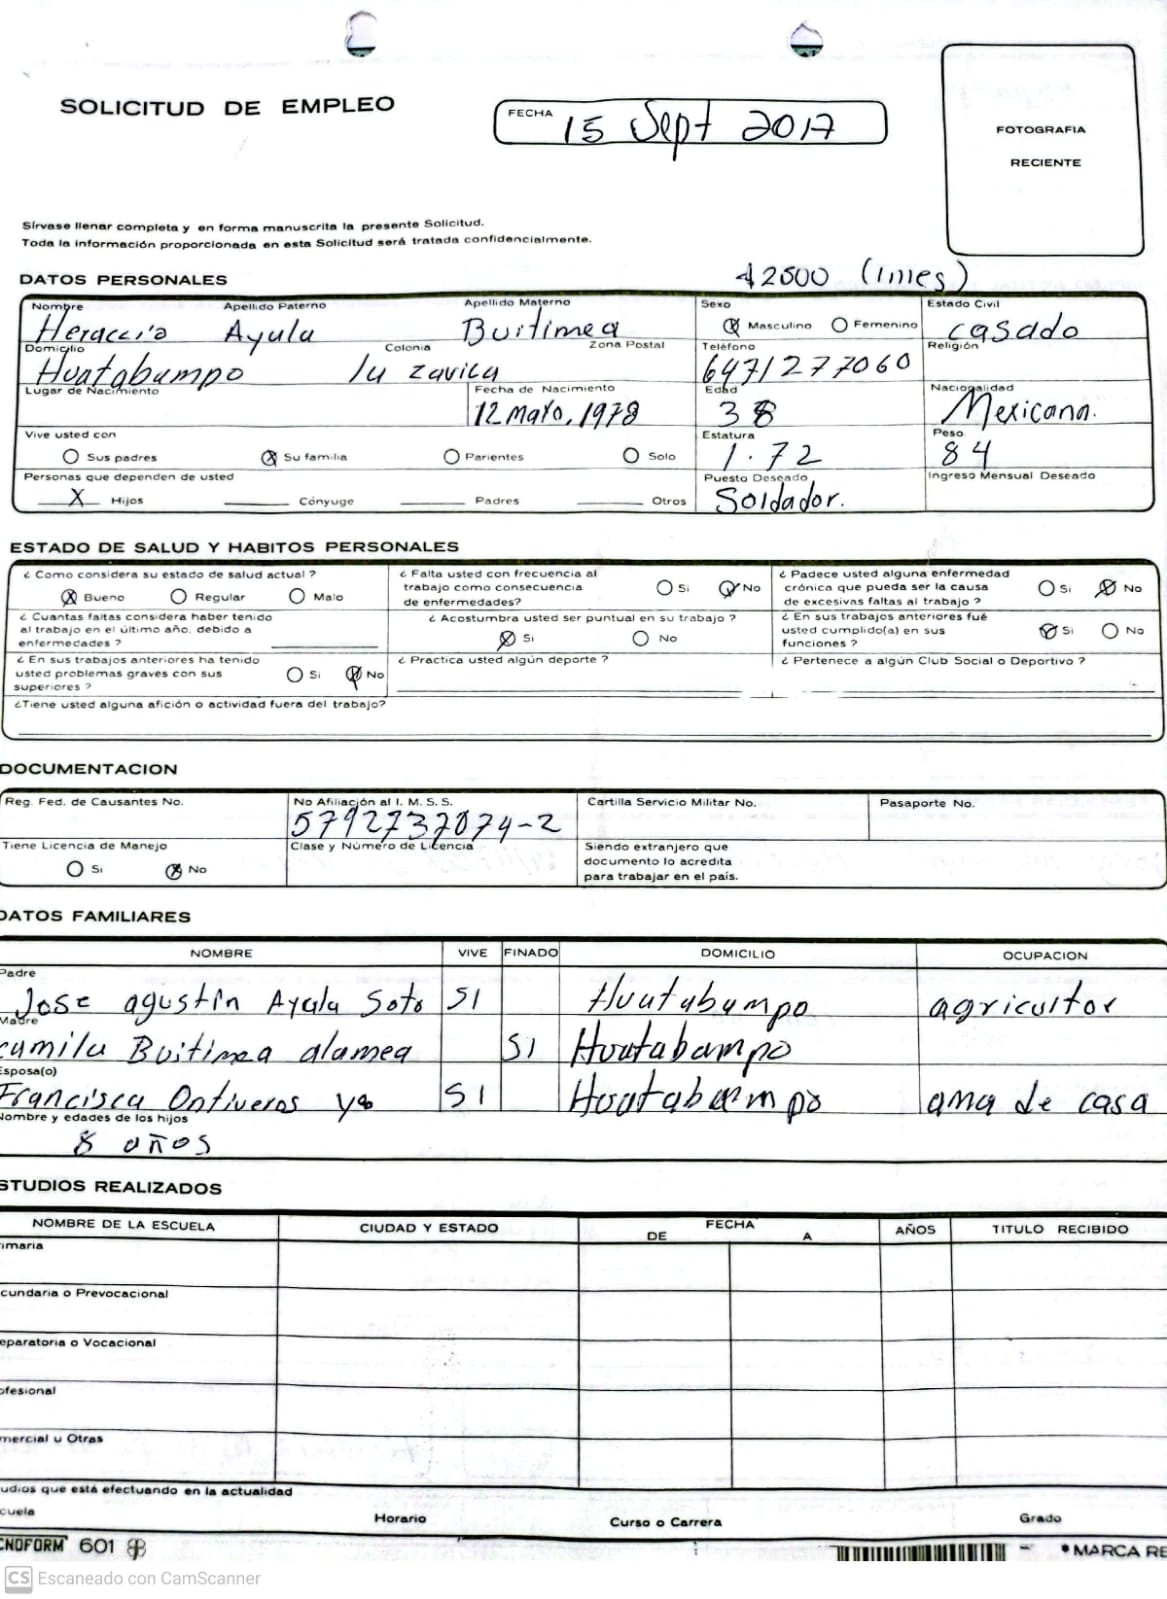 SOLICITUD DE EMPLEO
FECHA 15 Sept 2017
FOTOGRAFIA
RECIENTE
Sírvase llenar completa y en forma manuscrita la presente Solicitud.
Toda la información proporcionada en esta Solicitud será tratada confidencialmente.
DATOS PERSONALES
$2500 (1mes)
Nombre Apellido Paterno Apellido Materno Sexo Estado Civil
Ayala Buitimea X Masculino Femenino casado
Domicilio Colonia Zona Postal Teléfono Religión
Huatabampo la zavila 6471277060
Lugar de Nacimiento Fecha de Nacimiento Edad Nacionalidad
12 mayo, 1978 38 Mexicana.
Vive usted con Estatura Peso
Sus padres X Su familia Parientes Solo 1.72 84
Personas que dependen de usted Puesto Deseado Ingreso Mensual Deseado
X Hijos Cónyuge Padres Otros Soldador.
ESTADO DE SALUD Y HABITOS PERSONALES
¿ Como considera su estado de salud actual ?
X Bueno Regular Malo
¿ Falta usted con frecuencia al
trabajo como consecuencia
de enfermedades?
Si No
¿ Padece usted alguna enfermedad
crónica que pueda ser la causa
de excesivas faltas al trabajo ?
Si No
¿ Cuantas faltas considera haber tenido
al trabajo en el último año, debido a
enfermedades ?
¿ Acostumbra usted ser puntual en su trabajo ?
Si No
¿ En sus trabajos anteriores fué
usted cumplido(a) en sus
funciones ?
Si No
¿ En sus trabajos anteriores ha tenido
usted problemas graves con sus
superiores ?
Si No
¿ Practica usted algún deporte ?
¿ Pertenece a algún Club Social o Deportivo ?
¿Tiene usted alguna afición o actividad fuera del trabajo?
DOCUMENTACION
Reg. Fed. de Causantes No. No Afiliación al I. M. S. S. Cartilla Servicio Militar No. Pasaporte No.
5792737074-2
Tiene Licencia de Manejo
Si X No
Clase y Número de Licencia
Siendo extranjero que
documento lo acredita
para trabajar en el país.
DATOS FAMILIARES
NOMBRE VIVE FINADO DOMICILIO OCUPACION
Padre
Jose agustin Ayala Soto SI Huatabampo agricultor
Madre
Buitimea alamea SI Huatabampo
Esposa(o)
Francisca Ontiveros SI Huatabampo ama de casa
Nombre y edades de los hijos
8 años
STUDIOS REALIZADOS
NOMBRE DE LA ESCUELA CIUDAD Y ESTADO FECHA AÑOS TITULO RECIBIDO
DE A
imaria
cundaria o Prevocacional
eparatoria o Vocacional
ofesional
mercial u Otras
udios que está efectuando en la actualidad
cuela Horario Curso o Carrera Grado
CNOFORM 601
*MARCA RE
CS Escaneado con CamScanner